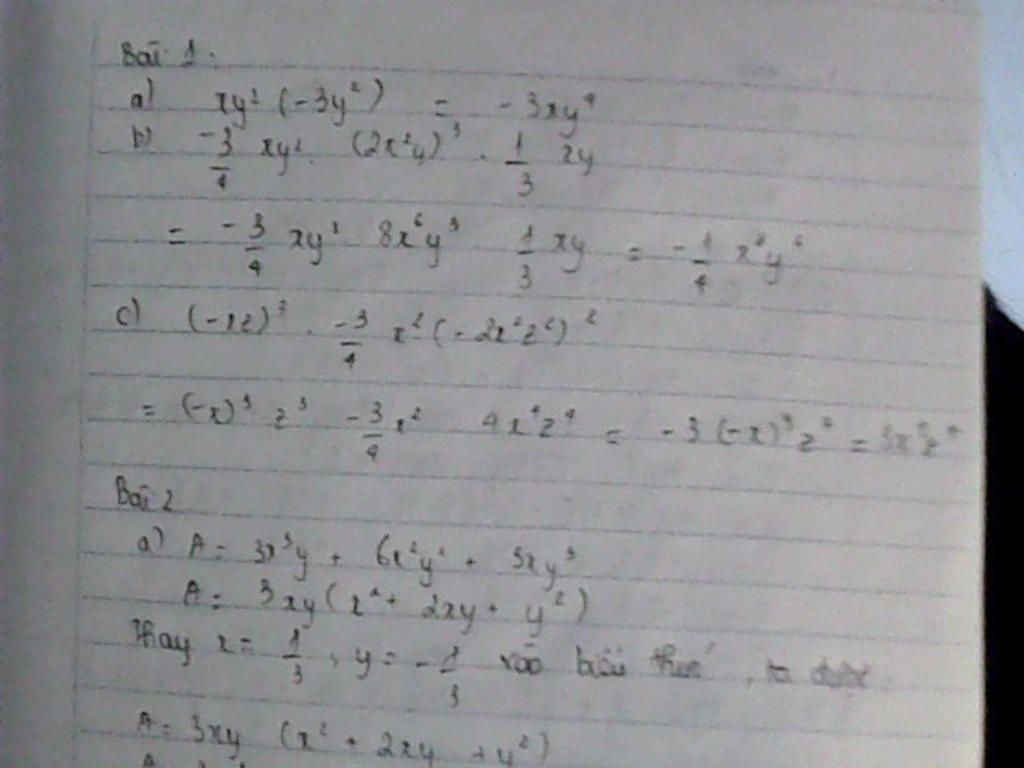 Bài 1:
a) xy² (-3y²) = -3xy⁴
b) -3/4 xy². (2x²y)³ . 1/3 xy
= -3/4 xy² 8x⁶y³ 1/3 xy = -1/4 x⁸y⁶
c) (-xz)³ . -3/4 x² (-2x²z²)²
= (-x)³ z³ -3/4 x² 4x⁴z⁴ = -3(-x)⁹z⁷ =
Bài 2
a) A = 3x³y + 6x²y² + 3xy³
A = 3xy(x² + 2xy + y²)
Thay x = 1/3, y = -1/3 vào biểu thức, ta được
A = 3xy (x² + 2xy + y²)